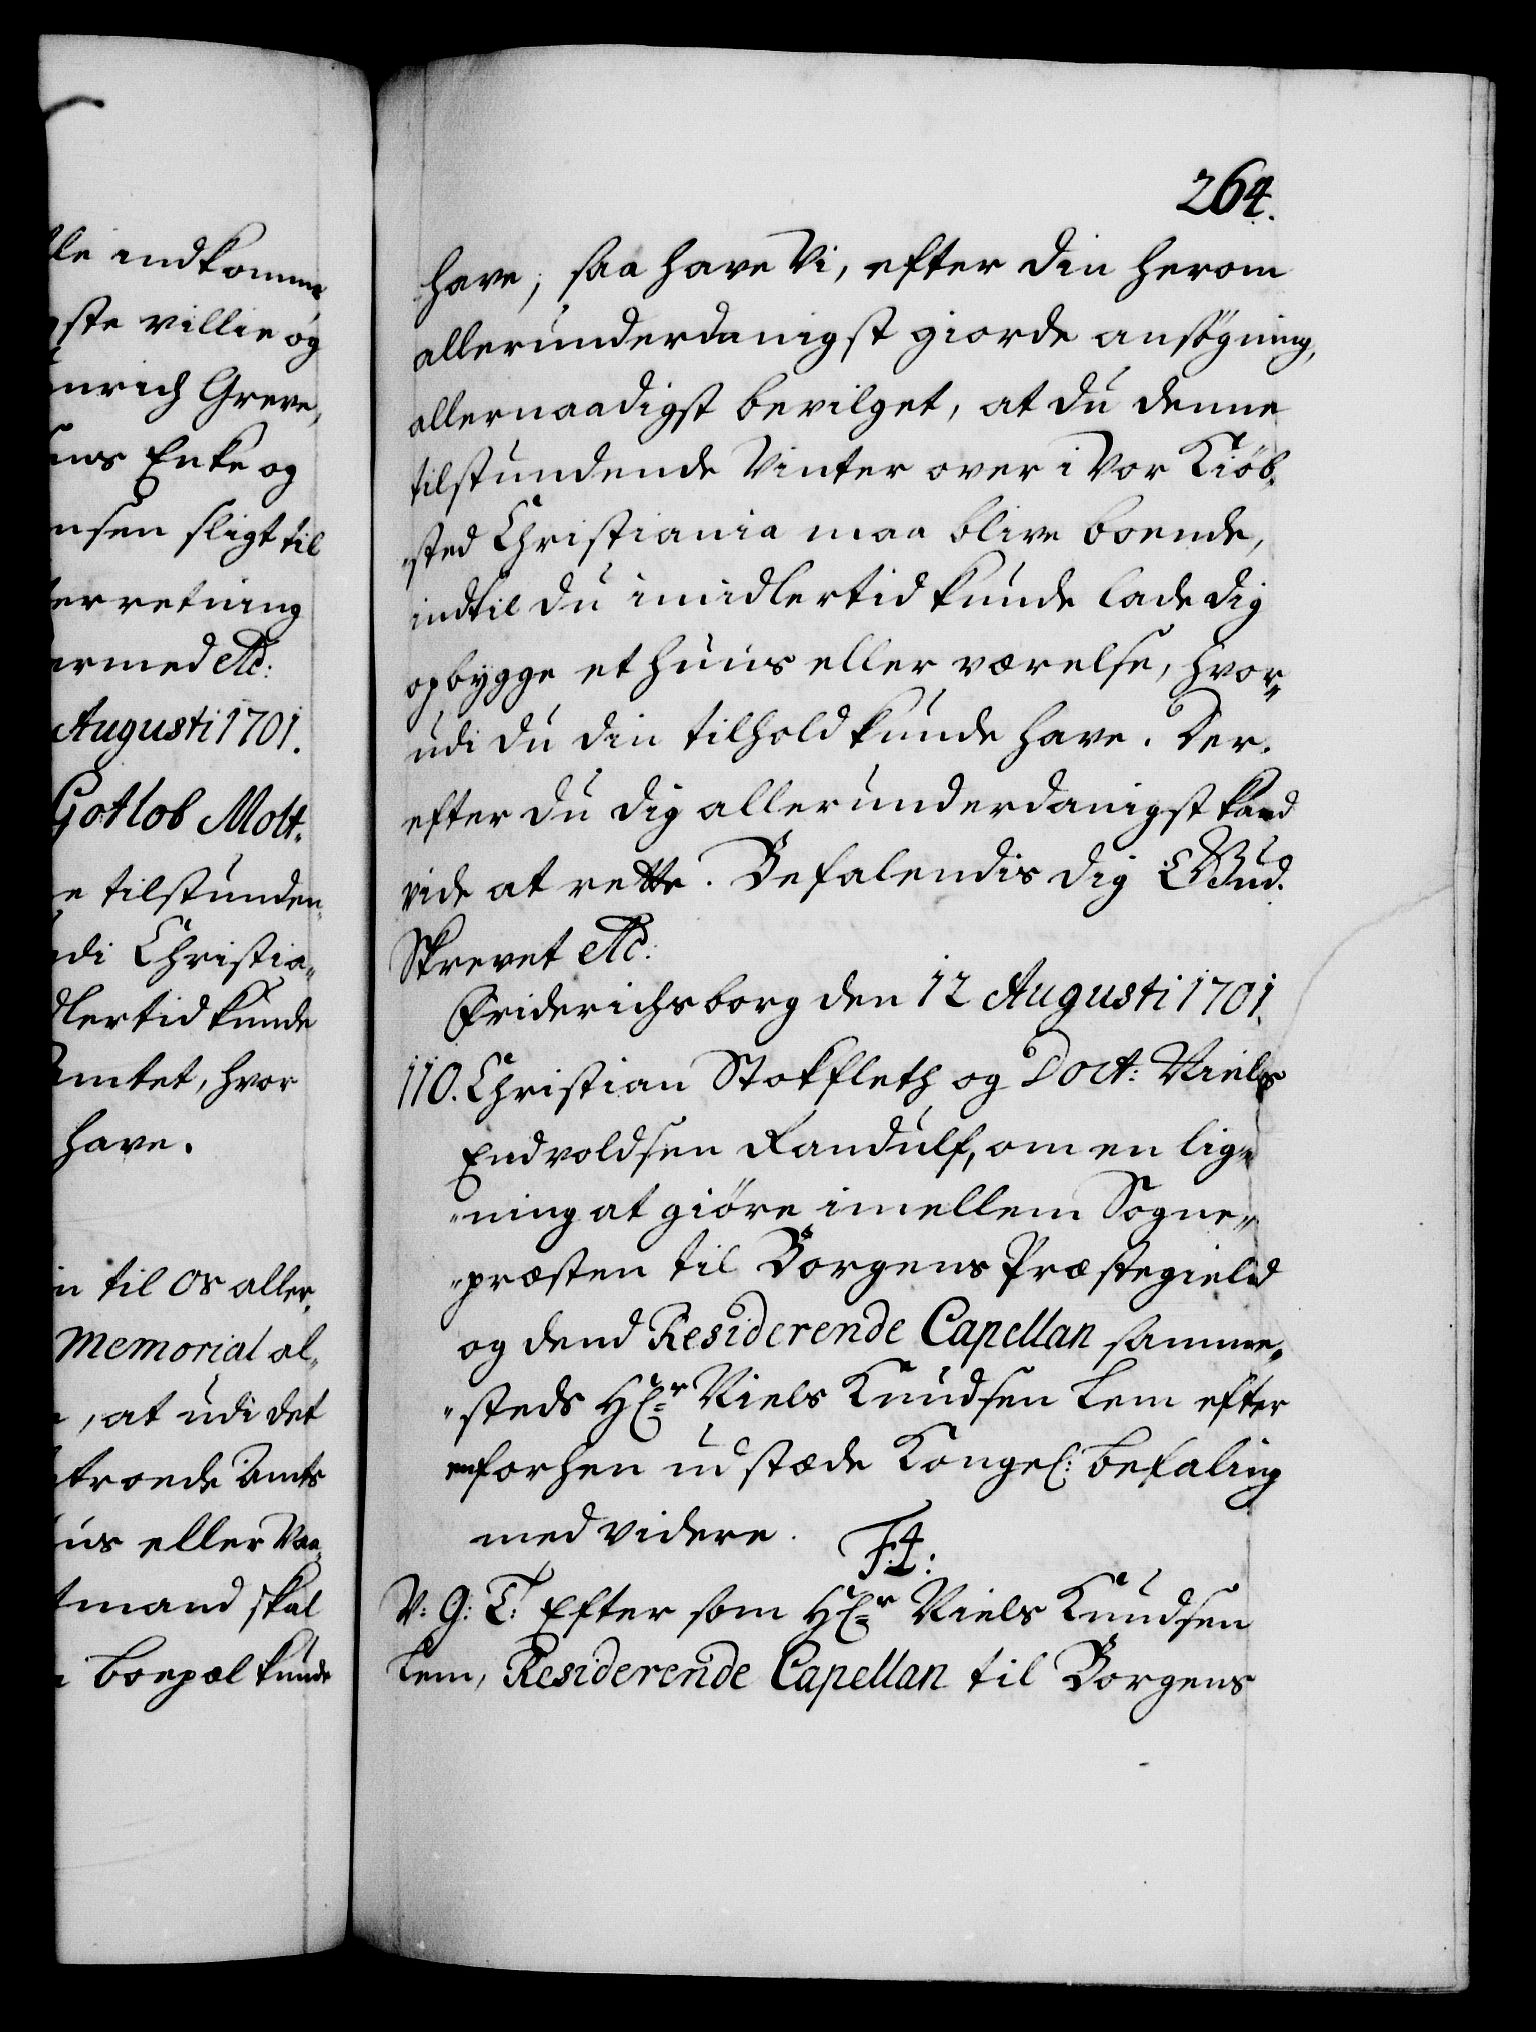 lle indkomne
gste villie og
inrich Greve,
ans Enke og
nsen sligt til
terretning
ermed etc:
Augusti 1701.
Gotlob Molt.
e tilstunden„
udi Christia„
dlertid kunde
Amtet, hvor
have.
in til os aller„
Memorial al„
, at udi det
troede Amts
us eller Vaa„
tmand skal
boepæl kunde
264.
have; saa have Vi, efter din herom
allerunderdanigst giorde ansögning,
allernaadigst bevilget, at du denne
tilstundende Vinter over i Vor Kiöb„
„sted Christiania maa blive boende,
indtil du imidlertid kunde lade dig
opbygge et huus eller værelse, hvor„
udi du din tilhold kunde have. Der„
efter du dig allerunderdanigst kand
vide at rette. Befalendis dig GBud.
Skrevet etc:
Friderichsborg den 12 Augusti 1701.
110. Christian Stokfleth og Doct: Niels
Endvoldsen Randulf, om en lig„
„ning at giöre imellem Sogne„
„præsten til Borgens Præstegield
og dend Residerende Capellan samme„
„steds Hr Niels Knudsen Lem efter
en forhen udstæde Kongel: befaling
med videre.
F:4:
V: G: T: Efter som Hr Niels Knudsen
Lem, Residerende Capellan til Borgens